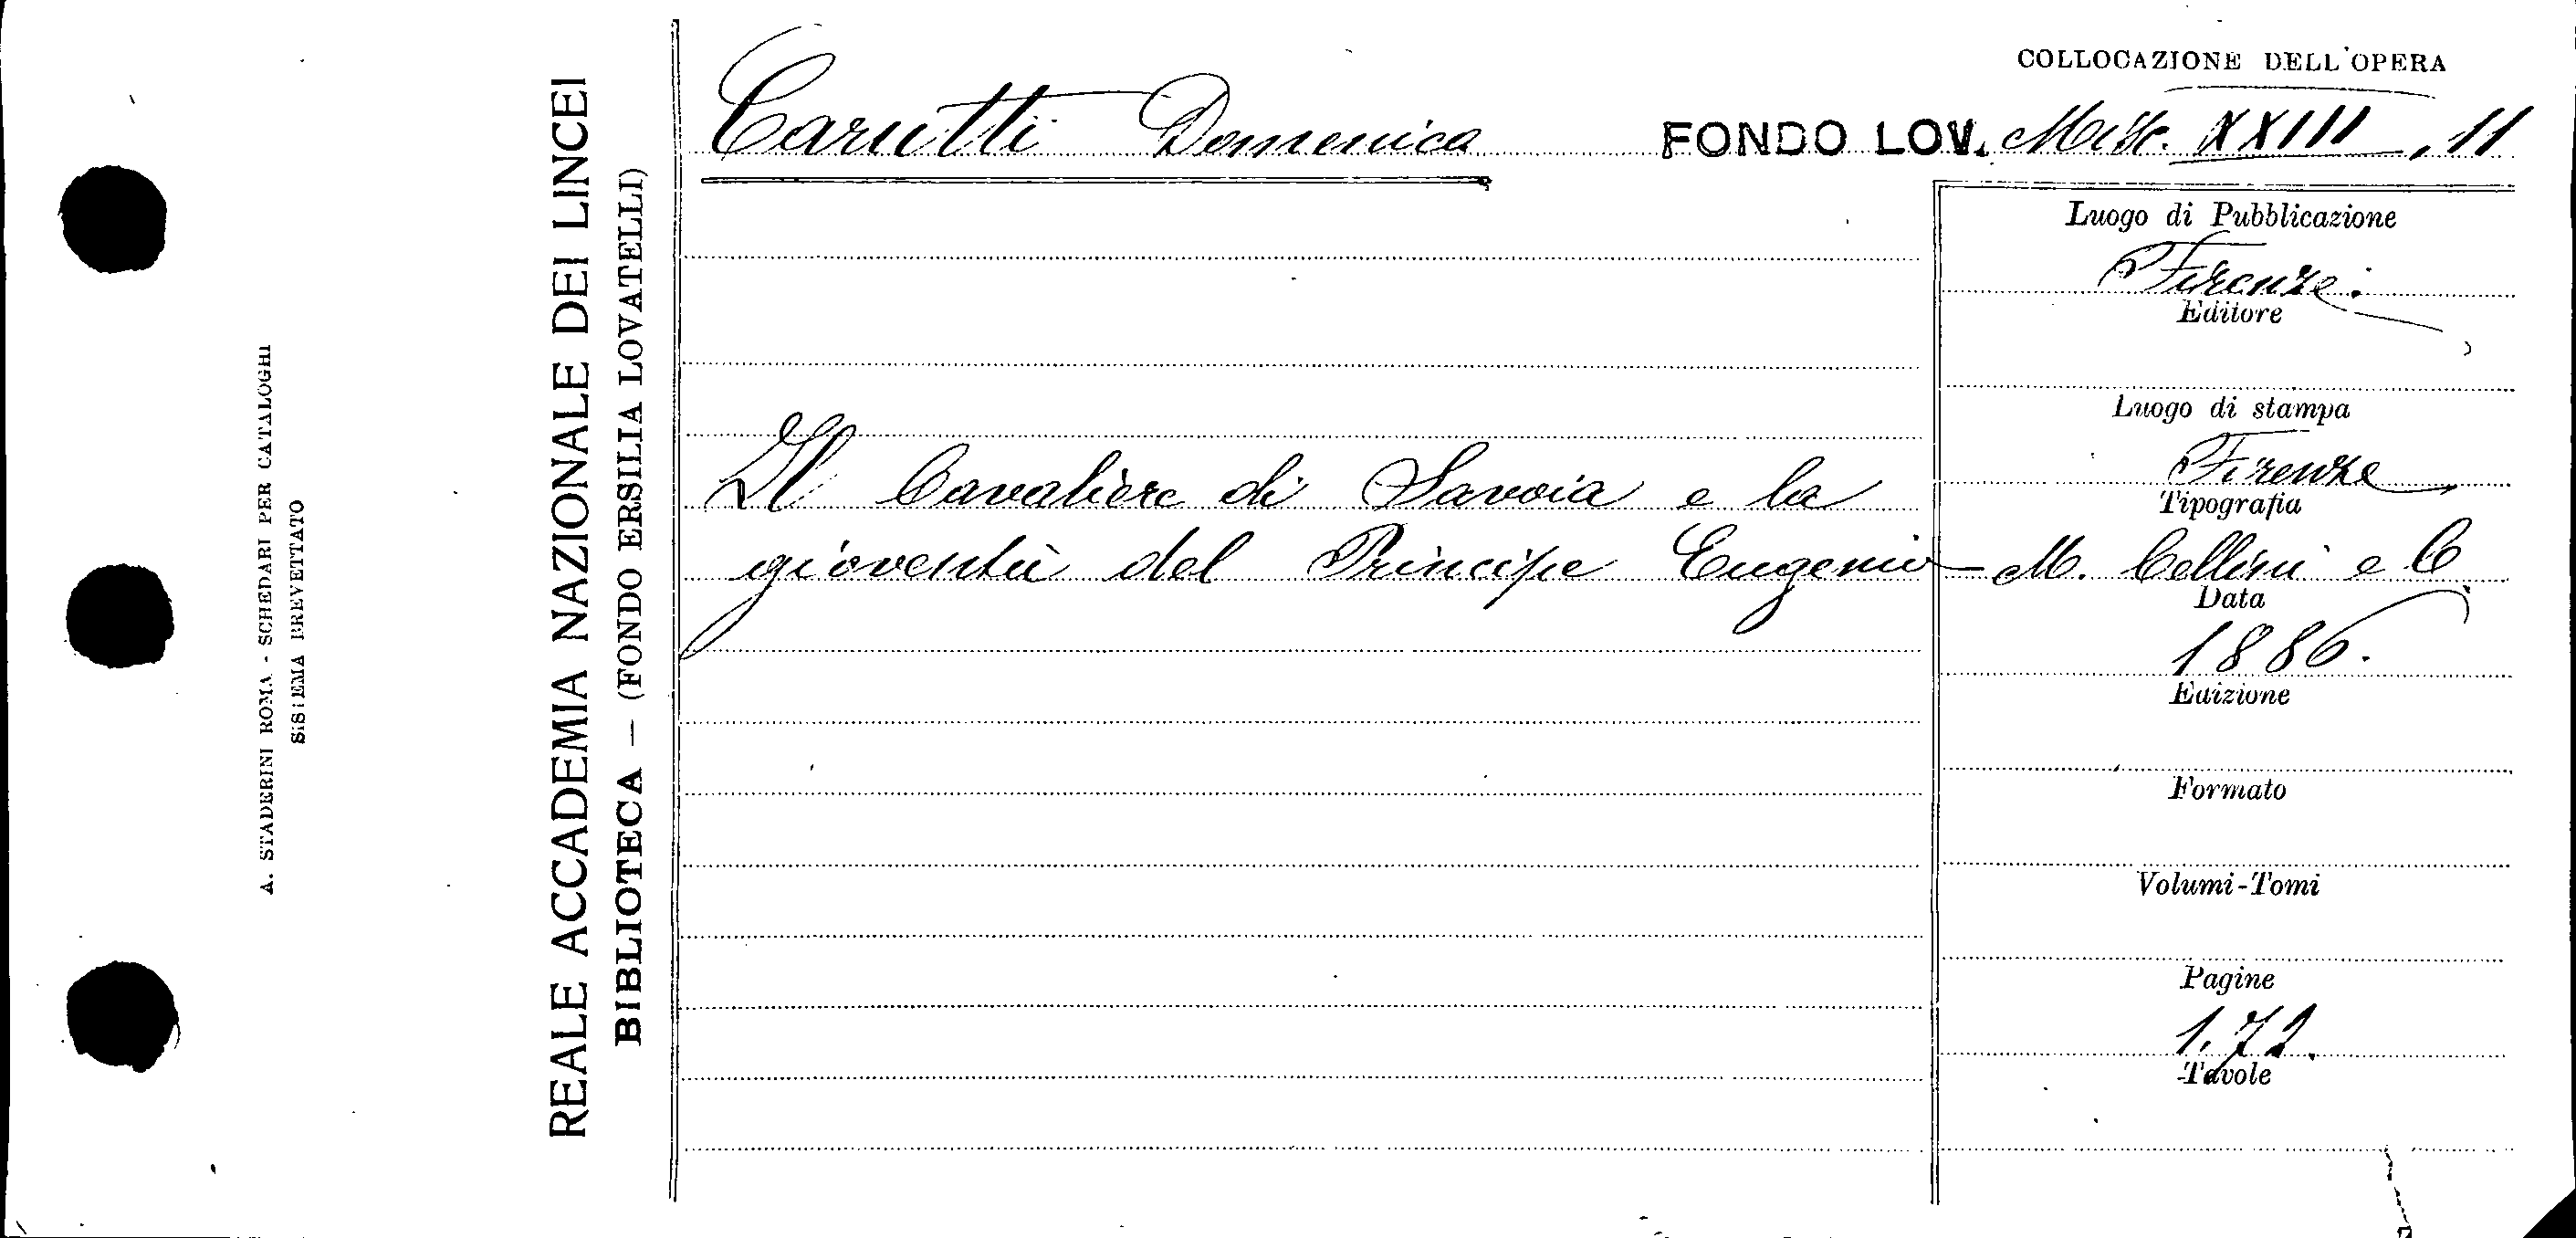 A. STADERINI ROMA - SCHEDARI PER CATALOGHI
SISTEMA BREVETTATO
REALE ACCADEMIA NAZIONALE DEI LINCEI
BIBLIOTECA — (FONDO ERSILIA LOVATELLI)
COLLOCAZIONE DELL'OPERA
Carutti Domenico FONDO LOV. Misc. XXIII, 11
Il Cavaliere di Savoia e la
gioventù del Principe Eugenio
Luogo di Pubblicazione
Firenze.
Editore
Luogo di stampa
Firenze
Tipografia
M. Cellini e C.
Data
1886.
Edizione
Formato
Volumi-Tomi
Pagine
1.72.
Tavole